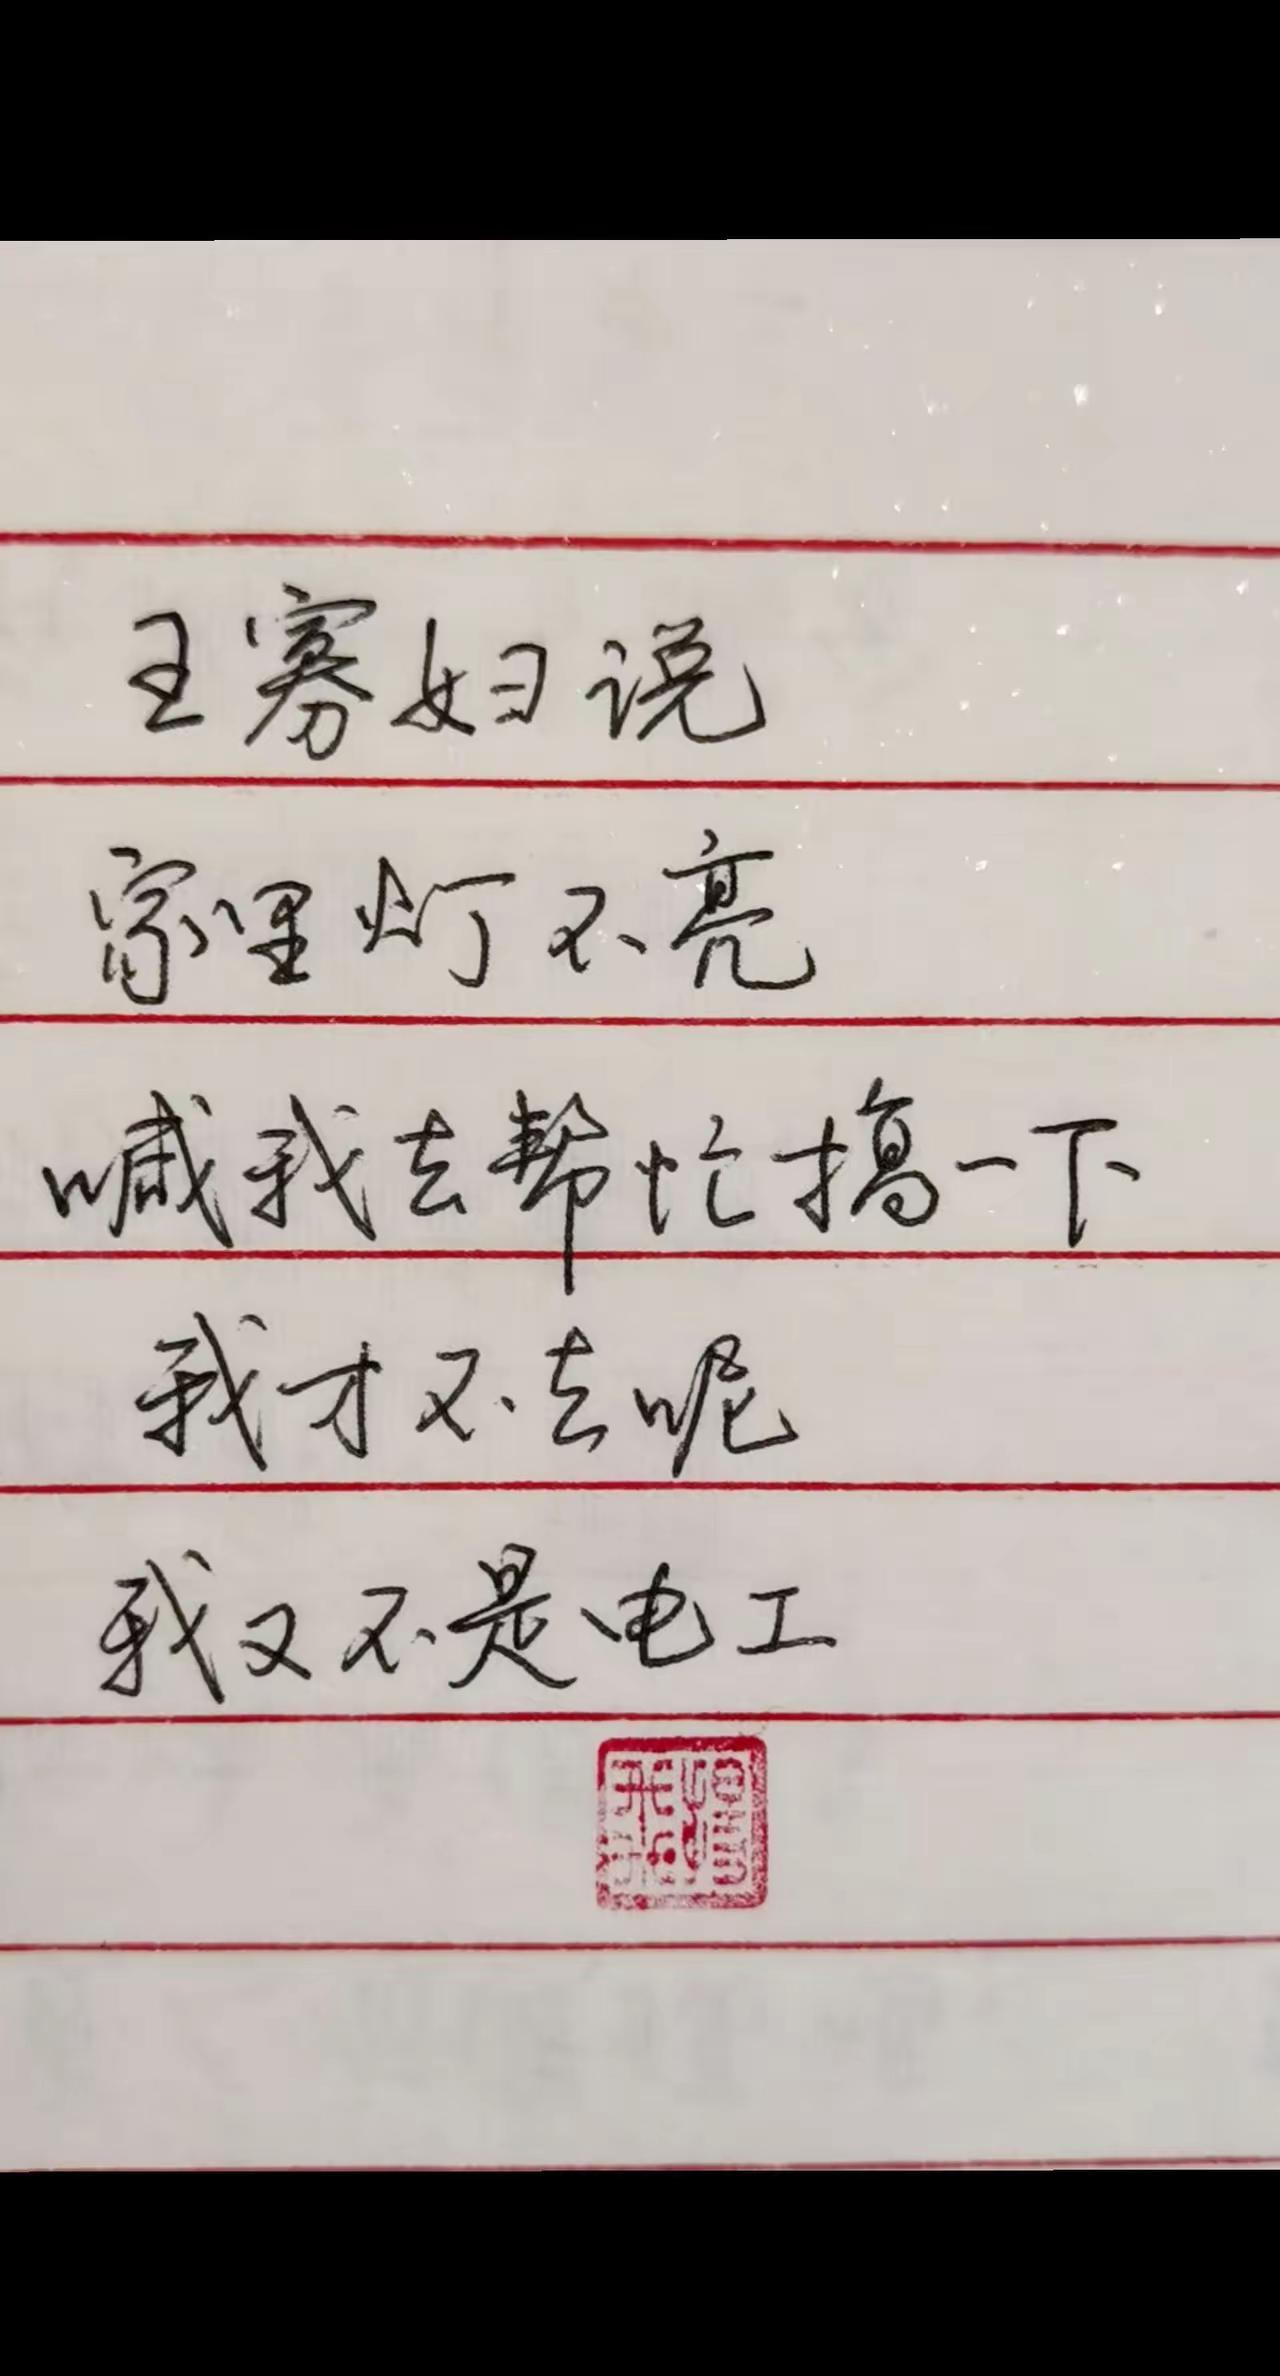 王寡妇说
家里灯不亮
喊我去帮忙搞一下
我才不去呢
我又不是电工